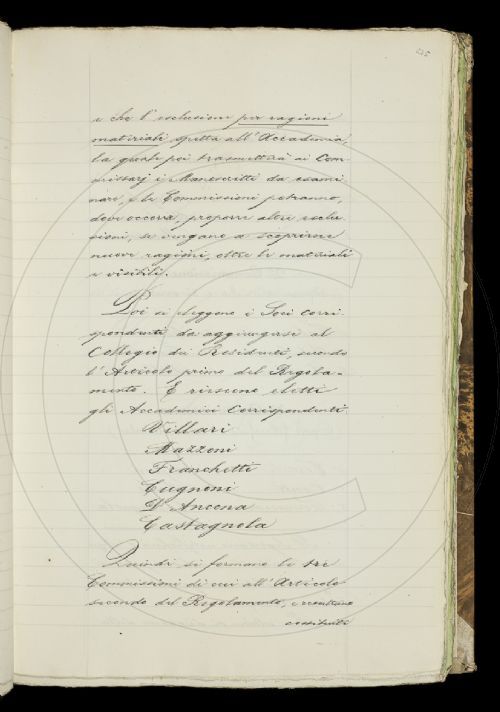 e che l'esclusione per ragioni
materiali spetta all'Accademia,
la quale poi trasmetterà ai Com-
missarj i Manoscritti da esami
nare, e le Commissioni potranno,
dove occorra, proporre altre esclu-
sioni, se vengano a scoprirne
nuove ragioni, oltre le materiali
e visibili.
Poi si eleggono i Soci corri-
spondenti da aggiungersi al
Collegio dei Residenti, secondo
l'Articolo primo del Regola-
mento. E riescono eletti
gli Accademici Corrispondenti
Villari
Mazzoni
Franchetti
Cugnoni
D'Ancona
Castagnola
Quindi si formano le tre
Commissioni di cui all'Articolo
secondo del Regolamento, e resultano
costituite